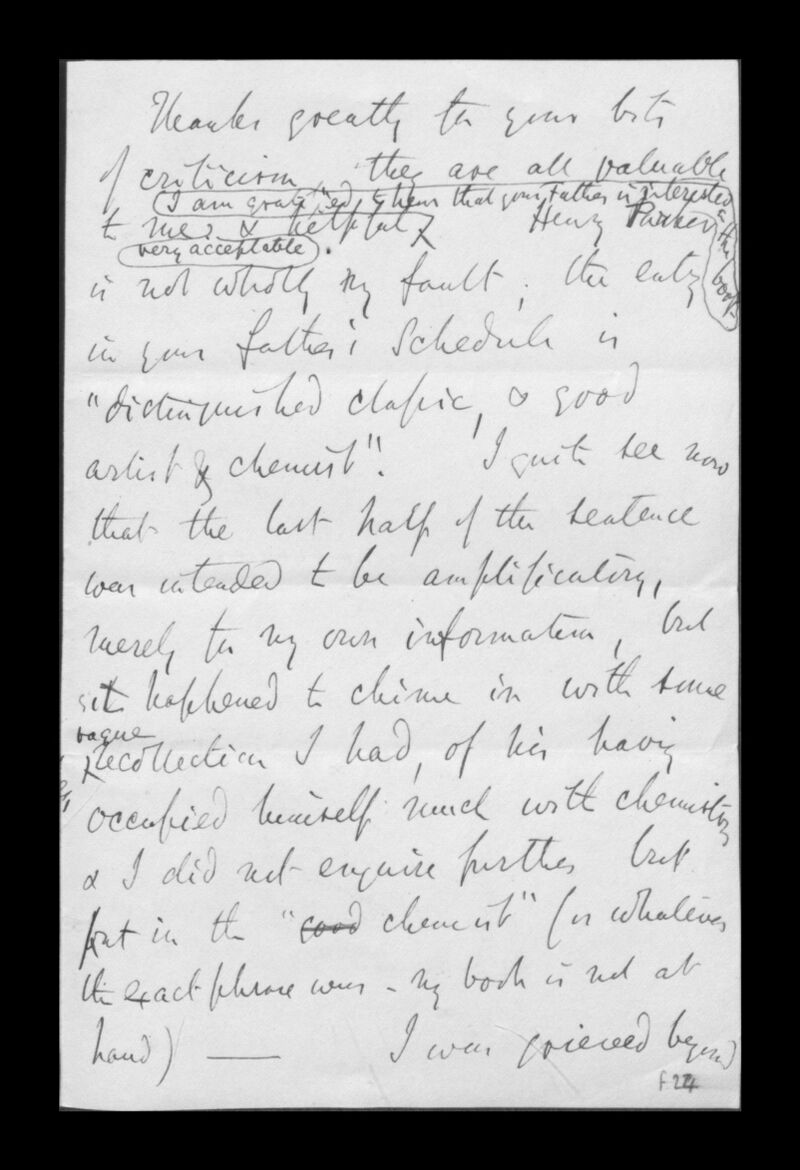 Thanks greatly for your bits
of criticism, they are all valuable
I am gratified to hear that your father is interested in the book
to me & helpful, Henry Parker
very acceptable.
is not wholly my fault; the entry
in your father's Schedule is
"distinguished classic, & good
artist & chemist". I quite see now
that the last half of the sentence
was intended to be amplificatory,
merely for my own information, but
it happened to chime in with some
vague
recollection I had, of his having
occupied himself much with chemistry
& I did not enquire further but
put in the "good chemist" (or whatever
the exact phrase was - my book is not at
hand) — I was grieved beyond
f 24